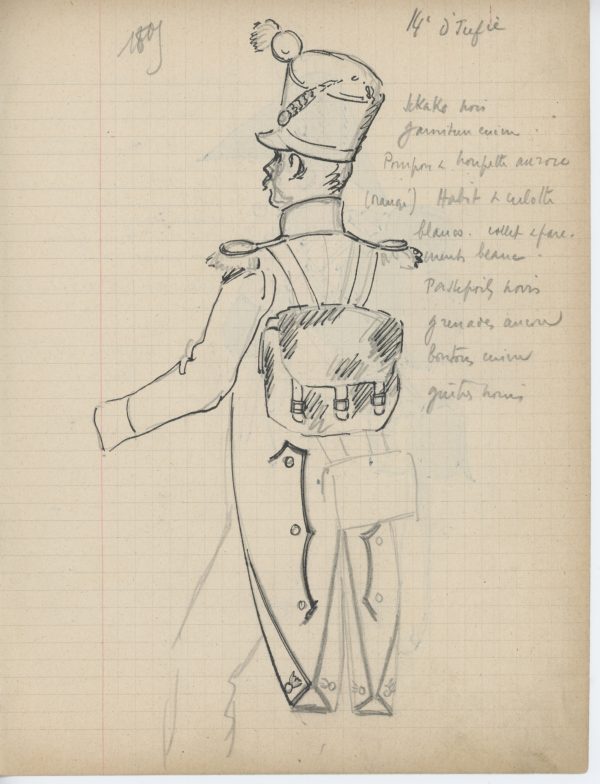 1805
14e d'Infie
Schako noir
garniture cuivre.
Pompon & houpette aurore
(orangé) Habit & culotte
blancs. collet & pare-
ments blancs.
Passepoils noirs
grenades aurore
boutons cuivre
guêtres noires